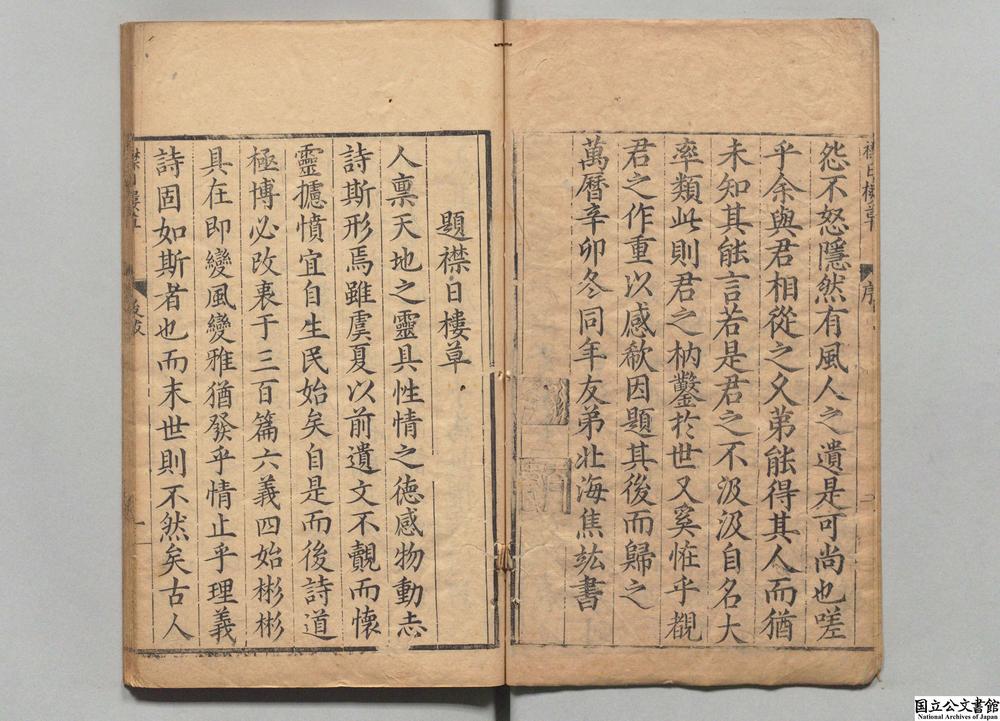 怨不怒隱然有風人之遺是可尚也嗟
乎余與君相從之久弟能得其人而猶
未知其能言若是君之不汲汲自名大
率類此則君之枘鑿於世又奚恠乎覩
君之作重以感欷因題其後而歸之
萬曆辛卯冬同年友弟壯海焦竑書
題襟日樓草
人稟天地之靈具性情之德感物動志
詩斯形焉雖虞夏以前遺文不覩而懷
靈攄憤宜自生民始矣自是而後詩道
極博必改衷于三百篇六義四始彬彬
具在即變風變雅猶發乎情止乎理義
詩固如斯者也而末世則不然矣古人
一
国立公文書館
National Archives of Japan